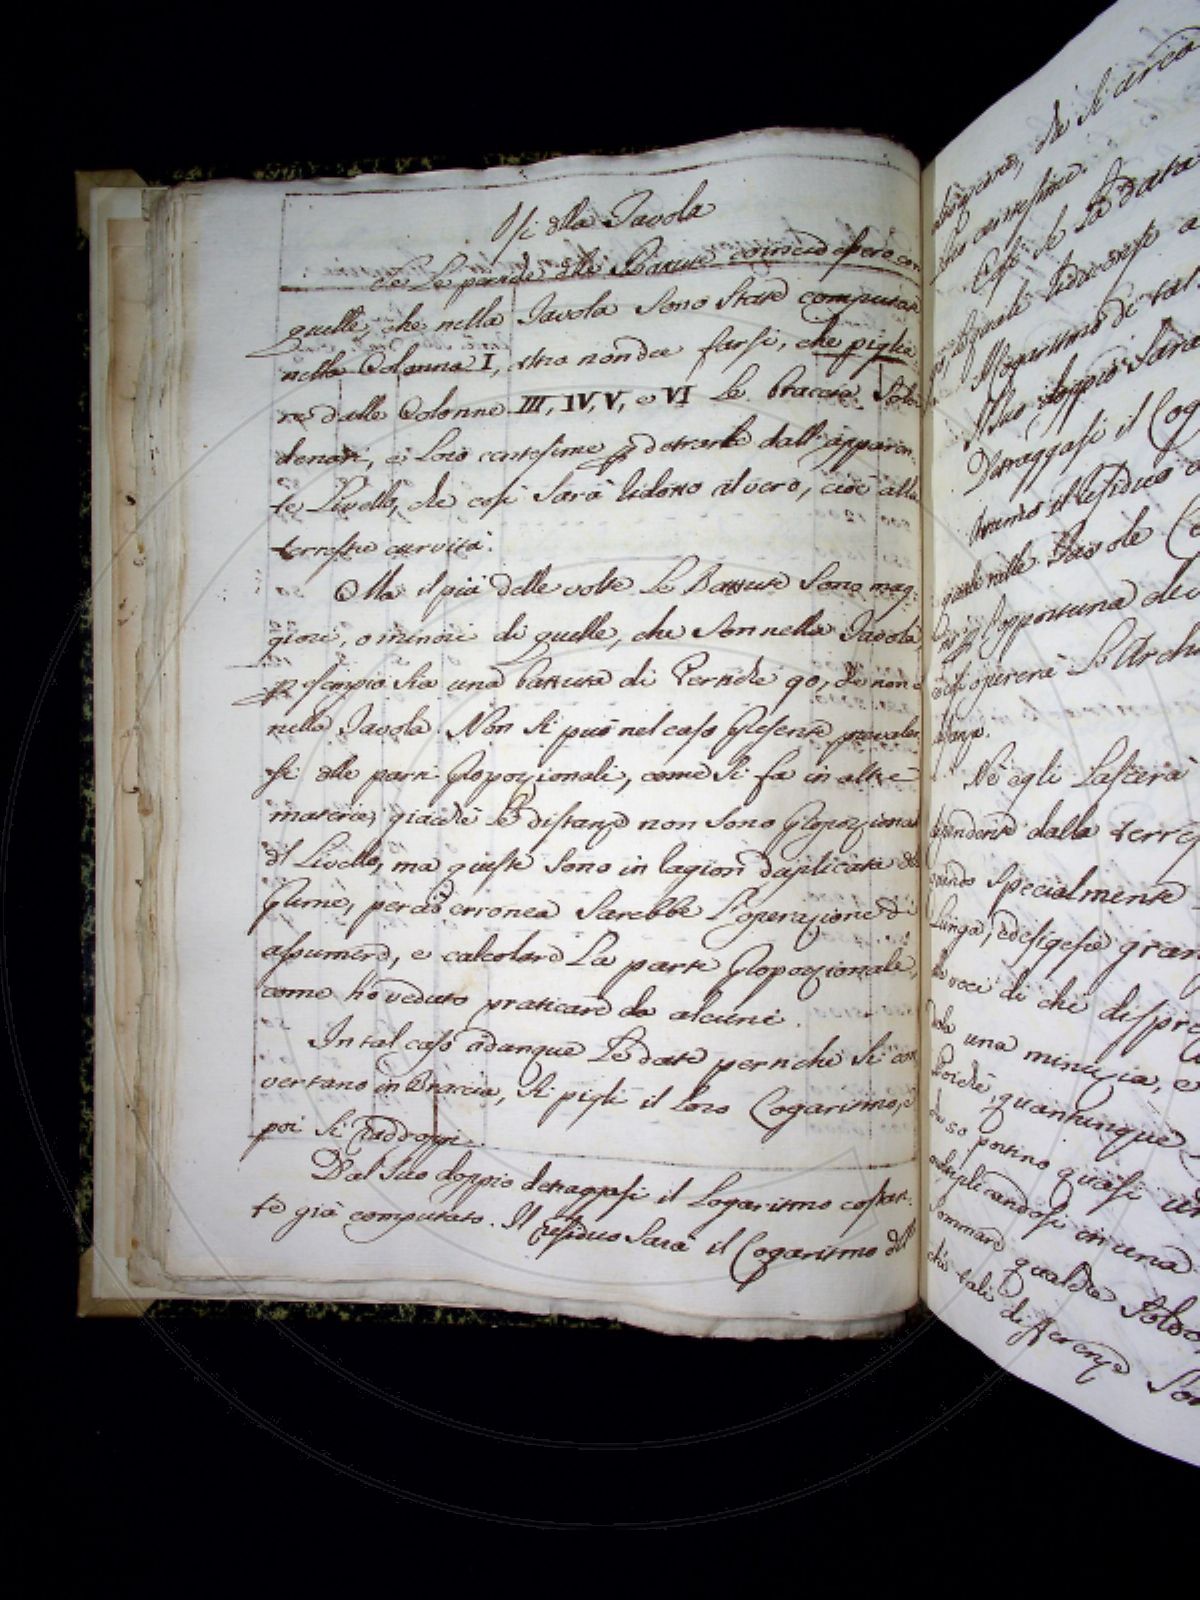 Usi della Tavola
Se Le partite delle Battute coincidessero con
quelle, che nella Tavola Sono State computate
nella Colonna I, altro non dee farsi, che piglia=
re dalle Colonne III, IV, V, e VI Le braccia Soldi
denari, e Loro centesime p detrarle dall' apparen=
te Livello, che così Sarà ridotto al vero, cioè alla
terrestre curvità.
Ma il più delle volte Le Battute Sono mag=
giori, o minori di quelle, che Son nella Tavola,
p esempio Sia una battuta di Pertiche 90, che non è
nella Tavola. Non Si può nel caso presente prevaler
si delle parti proporzionali, come Si fa in altre
materie, giacchè Le distanze non Sono proporzionali
al Livello, ma queste Sono in ragion duplicata delle
prime, perciò erronea Sarebbe L'operazione di
assumere, e calcolare La parte proporzionale,
come ho veduto praticare da alcuni.
In tal caso adunque Le date pertiche Si con
vertano in Braccia, Si pigli il Loro Logaritmo, e
poi Si raddoppi.
Dal Suo doppio detraggasi il Logaritmo costan=
te già computato. Il residuo Sarà il Logaritmo dell
che Si cerca
centesime.
Così Se La data
Logaritmo di tal
Il Suo doppio Sarà
Detraggasi il Log
il residuo
nelle Tavole
opportuna
opererà L'Archi
Nè egli Lascerà
dalla terre
specialmente
Lunga, ed esigesse gran
voci di chi dispre
una minuzia, e
Poichè, quantunque
50 portino quasi un
moltiplicandosi in una
Sommare qualche Soldo,
tali differenze Son